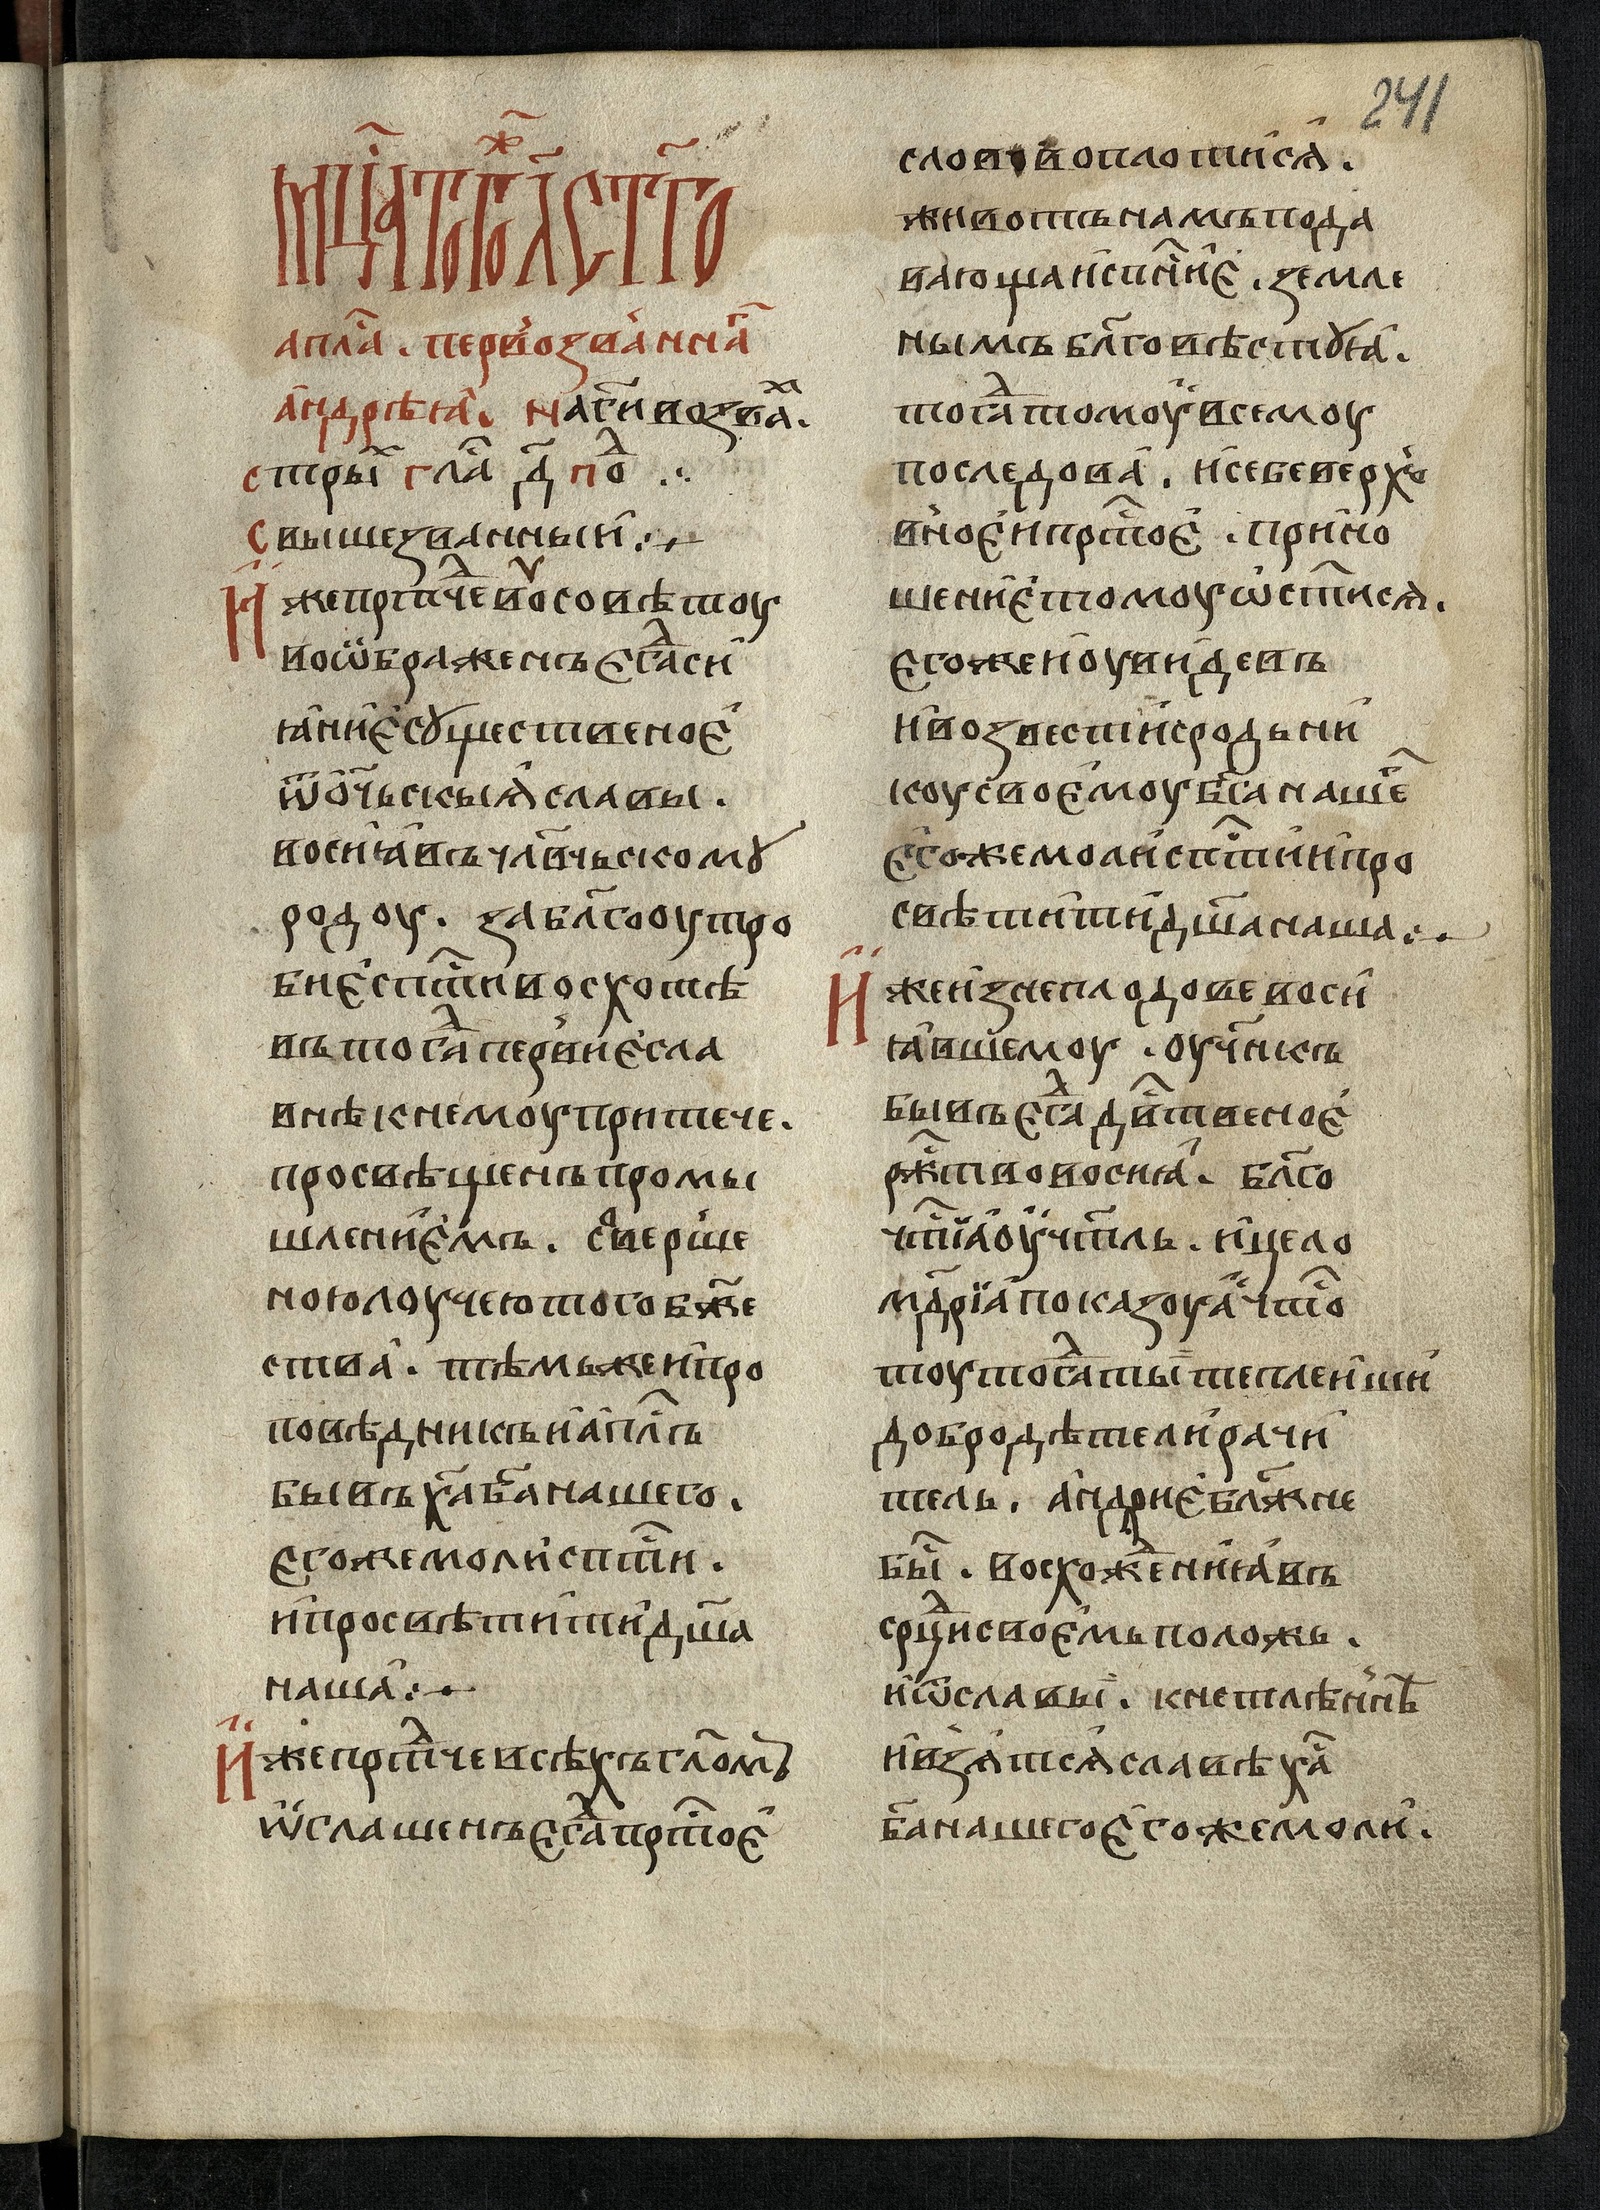 241
мц҃а тогож л҃ ст҃го
апл҃а . перво̇зва̇ннаⷢ҇
а҆ндрѣꙗ҆ . на гс҃и возваⷯ .
стрыⷯ гла҃ д҃ поⷣ ⁖
С вышезванныи҆ ⁘
И҆же прⷣтче во̇ совѣтоу
воѡ҆браженъ є҆гдⷶа си
ꙗ҆ниє҆ сꙋщественоє҆
ѿ о҆ч҃ьскыꙗ҆ славы .
восиꙗ҆въ чл҃вчьскомꙋ
родоу . за бл҃гооутро
биє҆ спⷭ҇ти восхотѣ
въ тогⷣа перви̇є҆ сла
внѣ к немоу притече .
просвѣщенъ промы
шлениє҆мъ . сове̇рше
ною лоучею того бж҃е
ства҆ . тѣмь же и҆ про
повѣдникъ и҆ а҆пл҃ъ
бывъ хс҃а бг҃а нашего .
є҆гоже моли҆ спⷭ҇ти .
и҆ просвѣтити҆ дш҃а
наша҆ ⁘
И҆же прⷣтче всѣхъ гл҃омъ
ѡ҆глашенъ є҆гдⷶа прⷭ҇тоє҆
слово воплотисѧ҆ .
животъ намъ пода
вающа и҆ спⷭ҇ниє҆ . земле
нымъ бл҃говѣстꙋꙗ҆ .
тогⷣа томоу҆ всемоу
последова҆ . и҆ себе верхо̇
вноє҆ и прⷭ҇тоє҆ . прино
шениє҆ томоу ѡ҆ст҃исѧ .
є҆гоже и҆ оувидевъ
и҆ возвести҆ сродьни
коу своє҆моу бг҃а нашеⷢ҇
є҆гоже моли҆ спⷭ҇ти и҆ про
свѣтити҆ дш҃а наша ⁘
И҆же и҆з неплодове воси
ꙗ҆вшемоу . оуч҃нкъ
бывъ є҆гдⷶа дв҃твеноє҆
ржⷭ҇тво восиꙗ҆ . бл҃го
чⷭ҇тиꙗ҆ оу҆чт҃ль . и҆ цело
мⷣриꙗ҆ показоуа҆ чⷭ҇то
тоу тогⷣа ты теплеи҆ши
добродѣтели҆ рачи
тель . а҆ндриє҆ бл҃жне
быⷭ҇ . восхожⷣениꙗ҆ въ
срⷣци своє҆мь положь .
и҆ ѿ славы . к нетлѣннѣ҆
и҆ взѧ҆тсѧ҆ славѣ хс҃а
бг҃а нашего є҆гоже моли҆ .